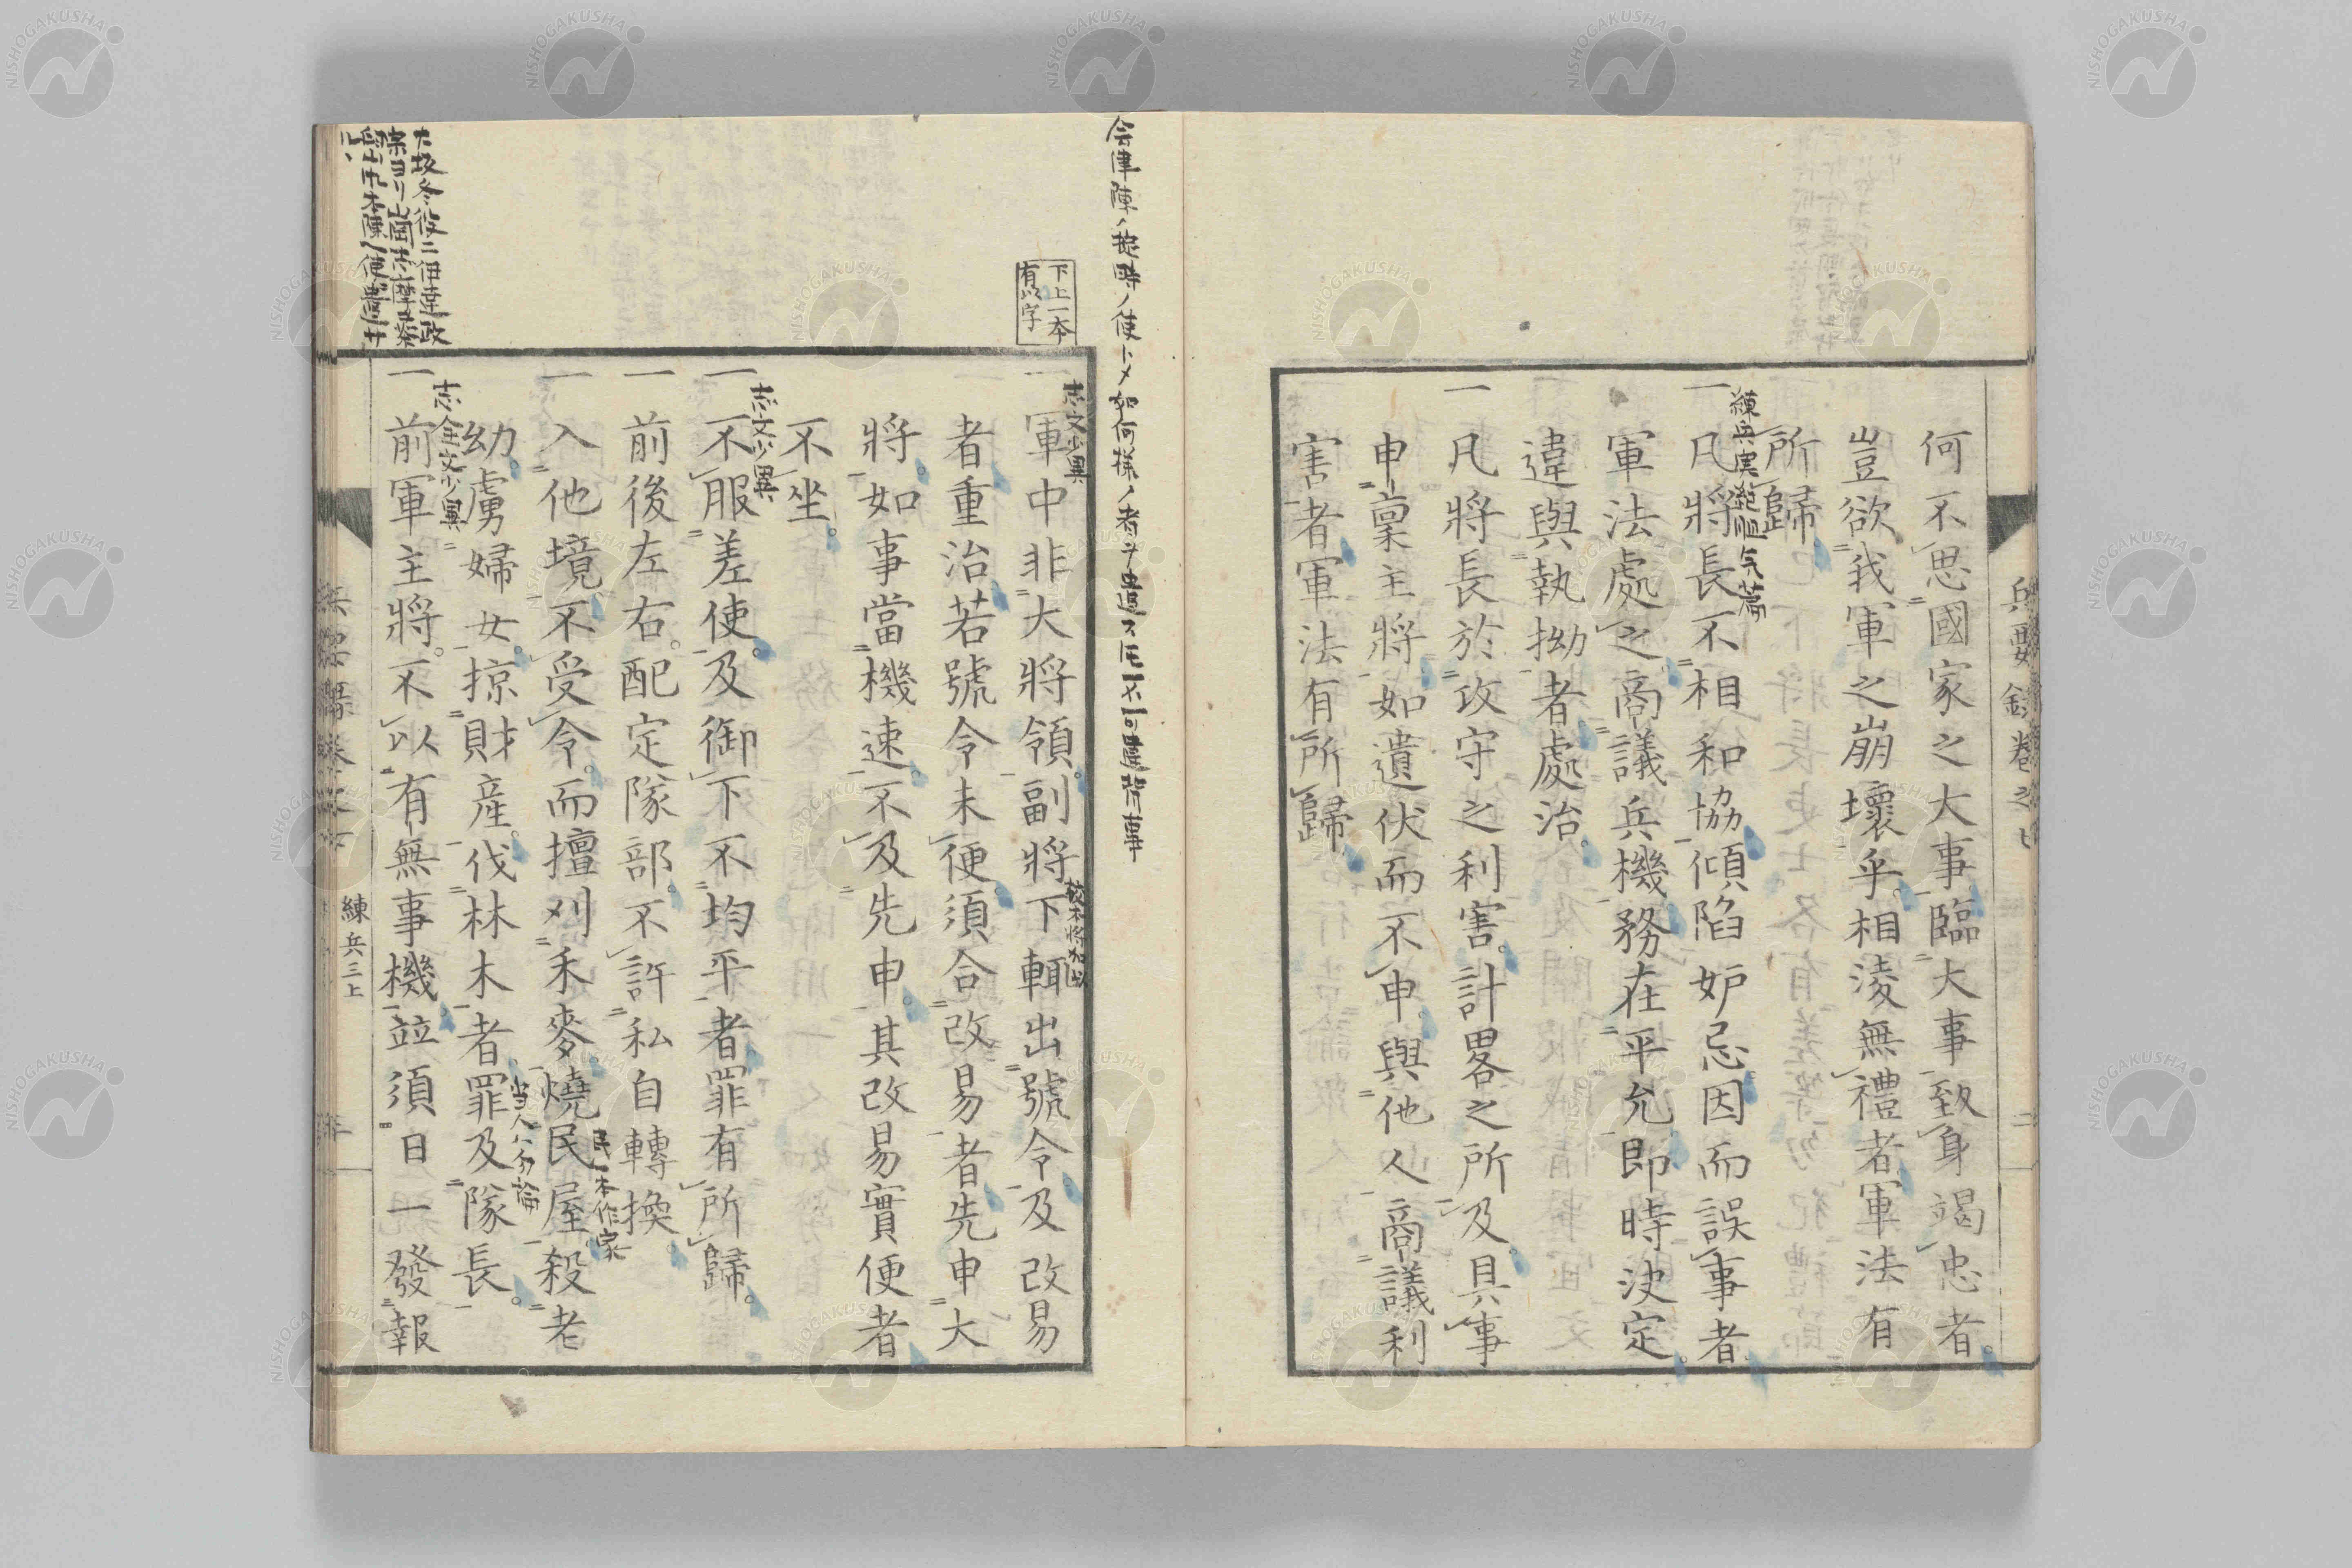 兵要録卷之七
二
何不思國家之大事臨大事致身竭忠者
豈欲我軍之崩壞乎相淩無禮者軍法有
所歸
練兵実紀胆気篇
一凡將長不相和協傾陷妒忌因而誤事者
軍法處之商議兵機務在平允即時決定
違與執拗者處治
一凡將長於攻守之利害計畧之所及具事
申稟主將如遺伏而不申與他人商議利
害者軍法有所歸
会津陣ノ掟時ノ使ニメ如何様ノ者ヲ遣スト不可違背事
下上一本
有以字
志文少異
一軍中非大將領副將下輒出號令及改易
者重治若號令未便須合改易者先申大
將如事當機速不及先申其改易實便者
不坐
志文少異
一不服差使及御下不均平者罪有所歸
一前後左右配定隊部不許私自轉換
民一本作家
一入他境不受令而擅刈禾麥燒民屋殺老
当人ハ勿論
幼虜婦女掠財產伐林木者罪及隊長
志全文少異
一前軍主將不以有無事機竝須日一發報
大坂冬役ニ伊達政
練兵三上
NISHOGAKUSHA